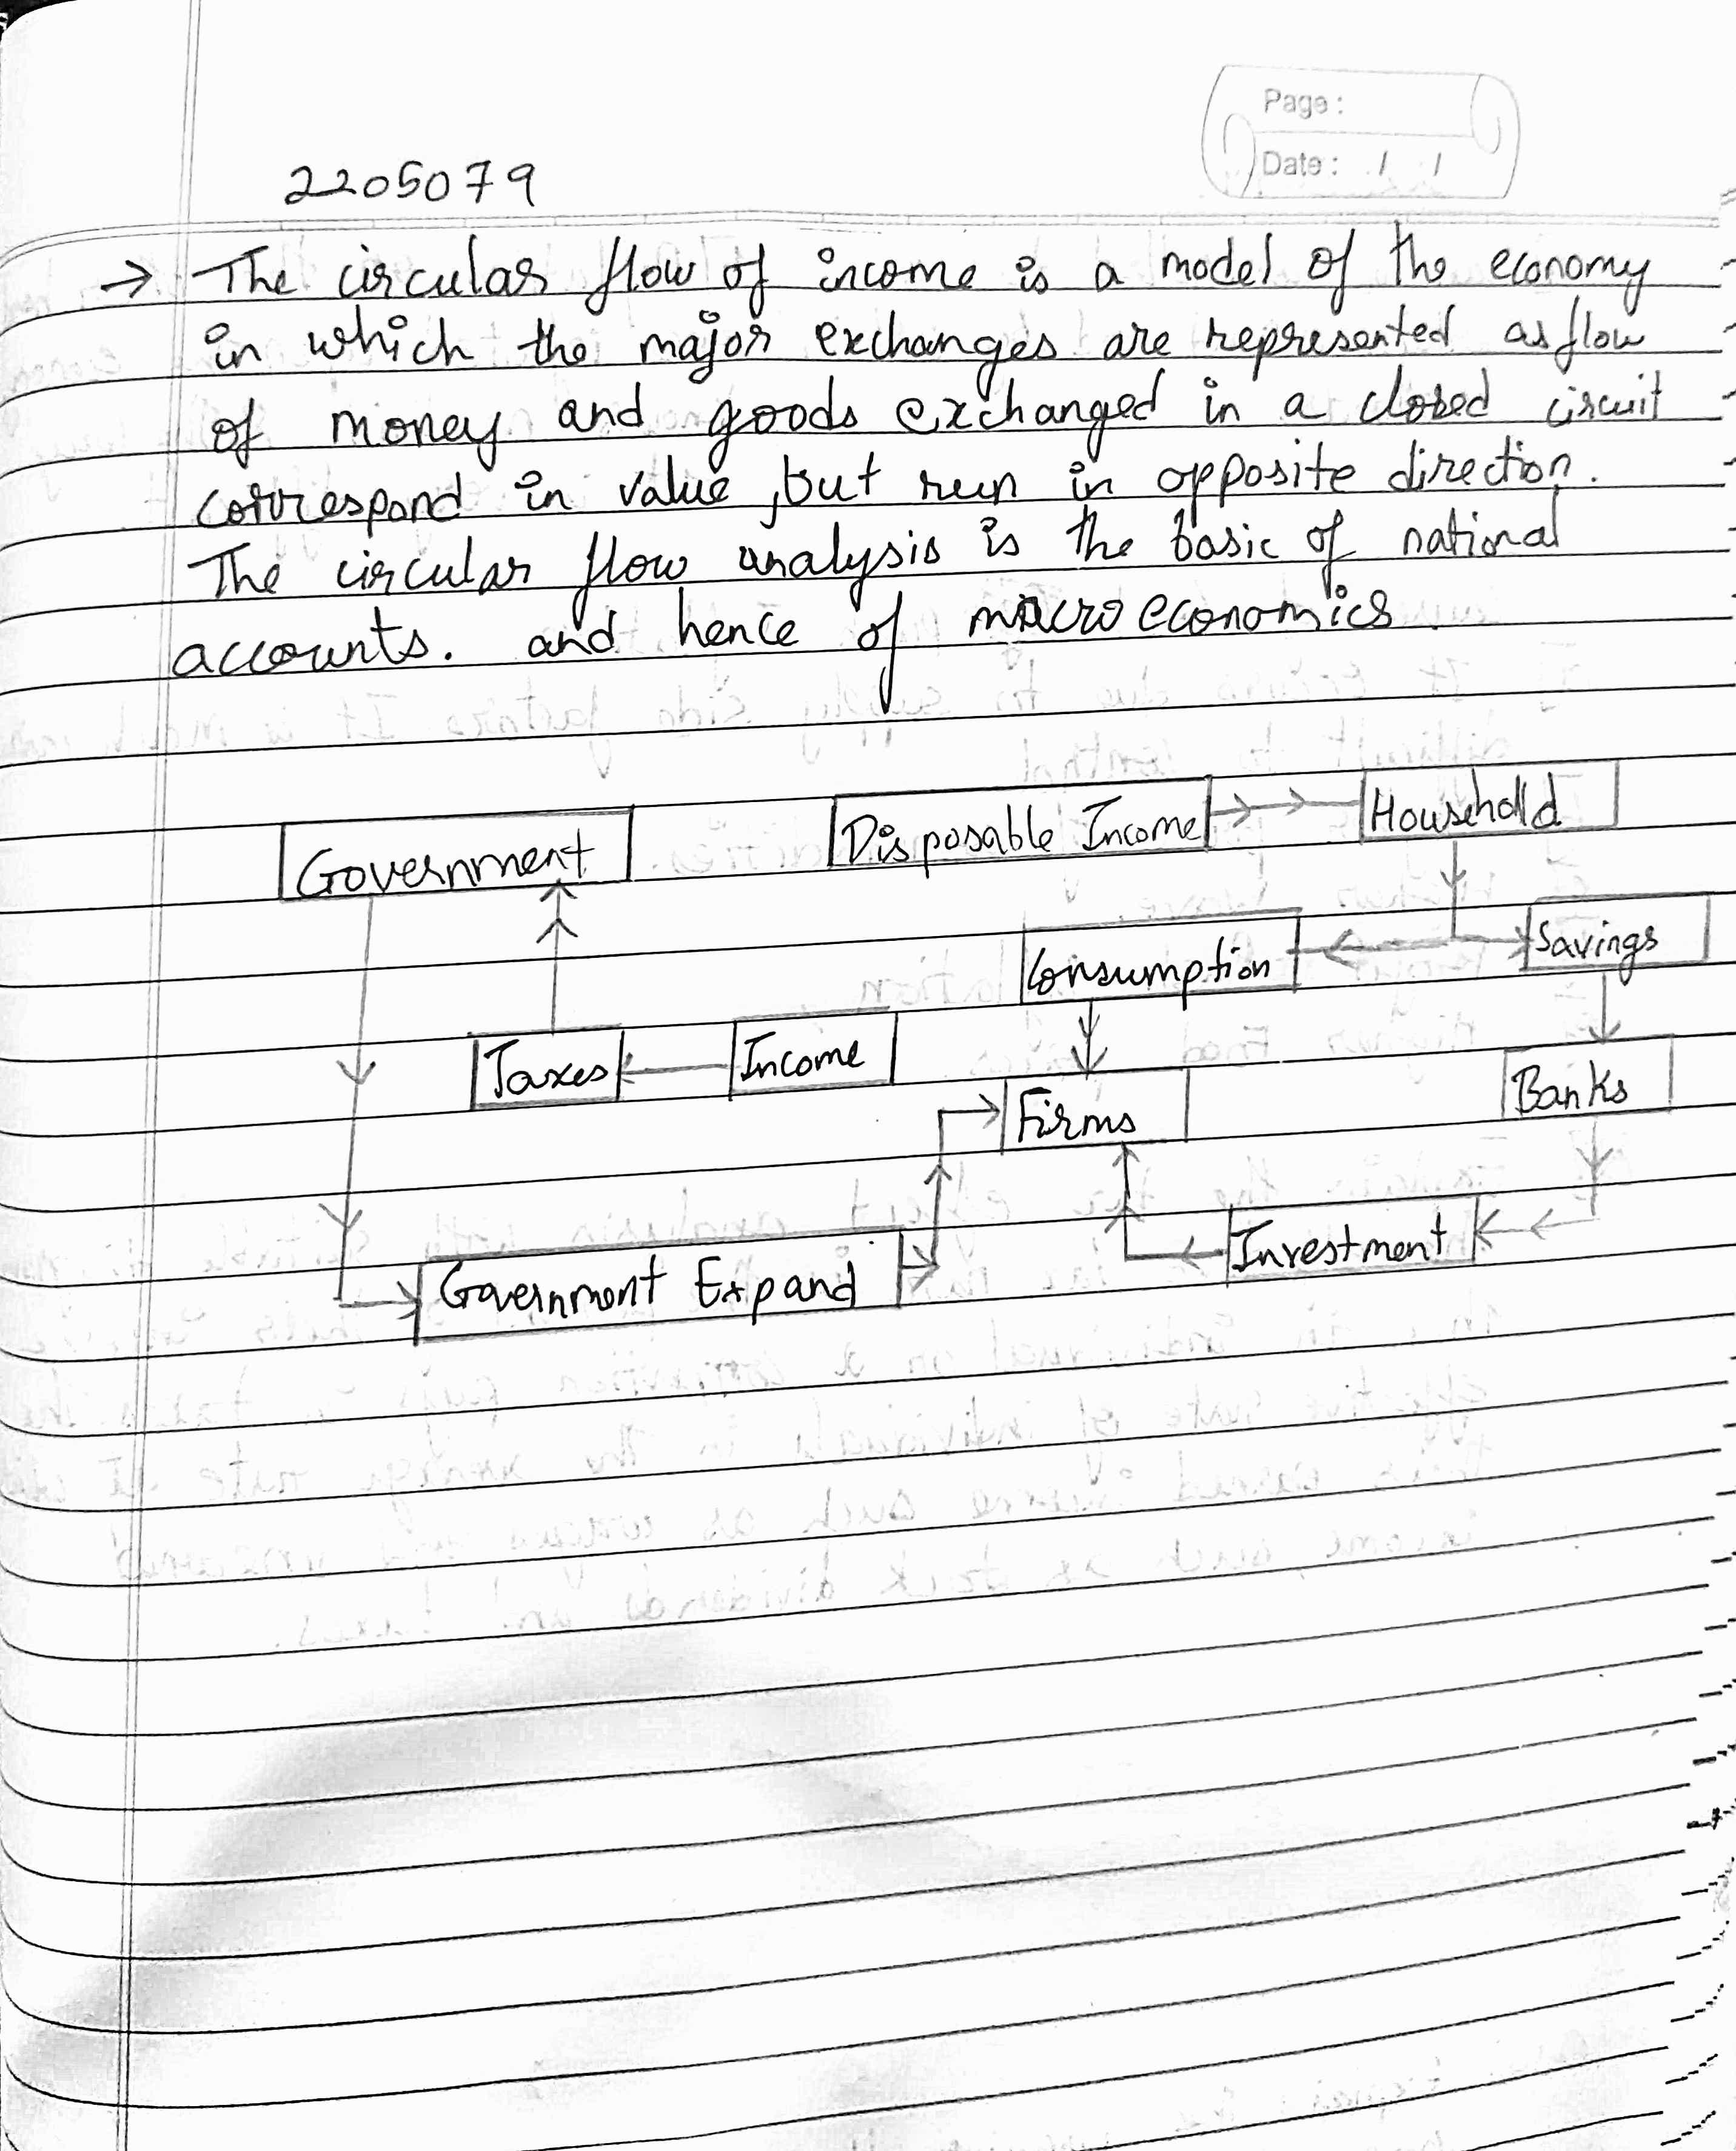 Page :
Date : / /
2205079
→ The circular flow of income is a model of the economy
in which the major exchanges are represented as flow
of money and goods exchanged in a closed circuit
correspond in value, but run in opposite direction.
The circular flow analysis is the basic of national
accounts. and hence of macroeconomics.
Government
Disposable Income
Household
Consumption
Savings
Taxes
Income
Firms
Banks
Government Expand
Investment